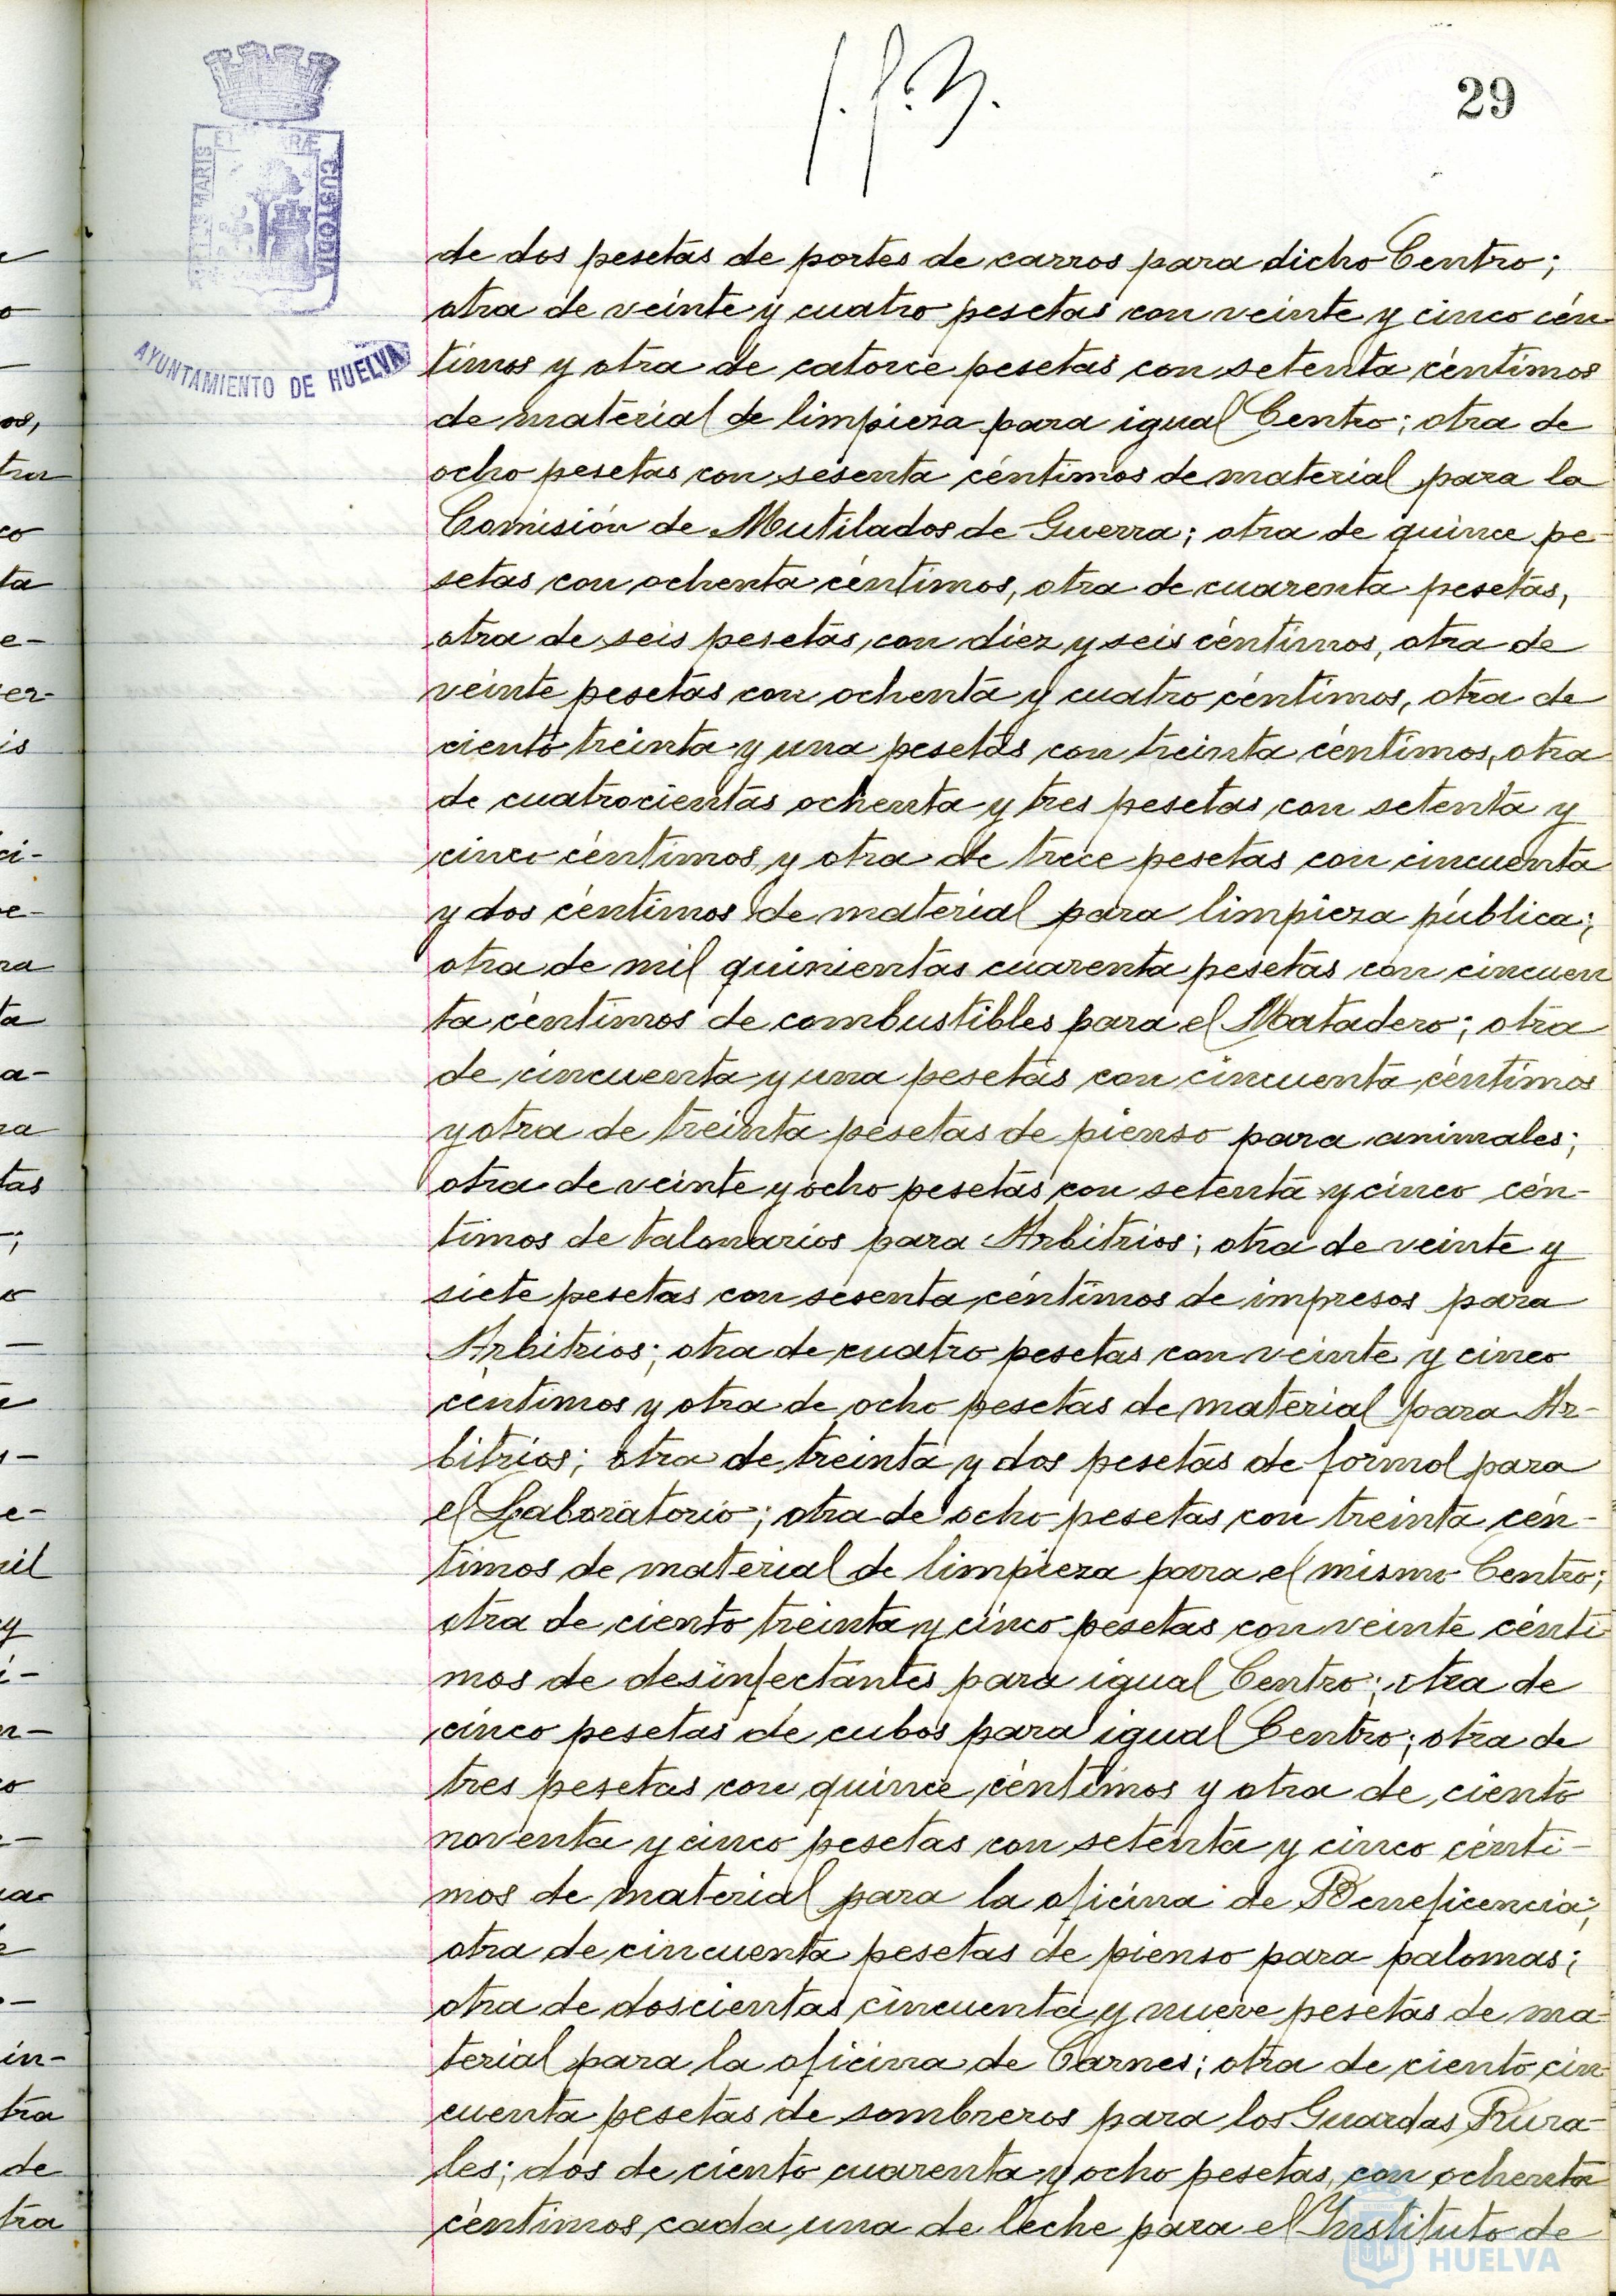 29
ET
CUSTODIA
MARIS
AYUNTAMIENTO DE HUELVA
de dos pesetas de portes de carros para dicho Centro;
otra de veinte y cuatro pesetas con veinte y cinco cén
timos y otra de catorce pesetas con setenta céntimos
de material de limpieza para igual Centro; otra de
ocho pesetas con sesenta céntimos de material para la
Comisión de Mutilados de Guerra; otra de quince pe-
setas con ochenta céntimos, otra de cuarenta pesetas,
otra de seis pesetas con diez y seis céntimos, otra de
veinte pesetas con ochenta y cuatro céntimos, otra de
ciento treinta y una pesetas con treinta céntimos, otra
de cuatrocientas ochenta y tres pesetas con setenta y
cinco céntimos y otra de trece pesetas con cincuenta
y dos céntimos de material para limpieza pública;
otra de mil quinientas cuarenta pesetas con cincuen
ta céntimos de combustibles para el Matadero; otra
de cincuenta y una pesetas con cincuenta céntimos
y otra de treinta pesetas de pienso para animales;
otra de veinte y ocho pesetas con setenta y cinco cén-
timos de talonarios para Arbitrios; otra de veinte y
siete pesetas con sesenta céntimos de impresos para
Arbitrios; otra de cuatro pesetas con veinte y cinco
céntimos y otra de ocho pesetas de material para Ar-
bitrios; otra de treinta y dos pesetas de formol para
el Laboratorio; otra de ocho pesetas con treinta cén-
timos de material de limpieza para el mismo Centro;
otra de ciento treinta y cinco pesetas con veinte cénti
mos de desinfectantes para igual Centro; otra de
cinco pesetas de cubos para igual Centro; otra de
tres pesetas con quince céntimos y otra de ciento
noventa y cinco pesetas con setenta y cinco cénti-
mos de material para la oficina de Beneficencia;
otra de cincuenta pesetas de pienso para palomas;
otra de doscientas cincuenta y nueve pesetas de ma-
terial para la oficina de Carnes; otra de ciento cin
cuenta pesetas de sombreros para los Guardas Rura-
les; dos de ciento cuarenta y ocho pesetas con ochenta
céntimos cada una de leche para el Instituto de
HUELVA